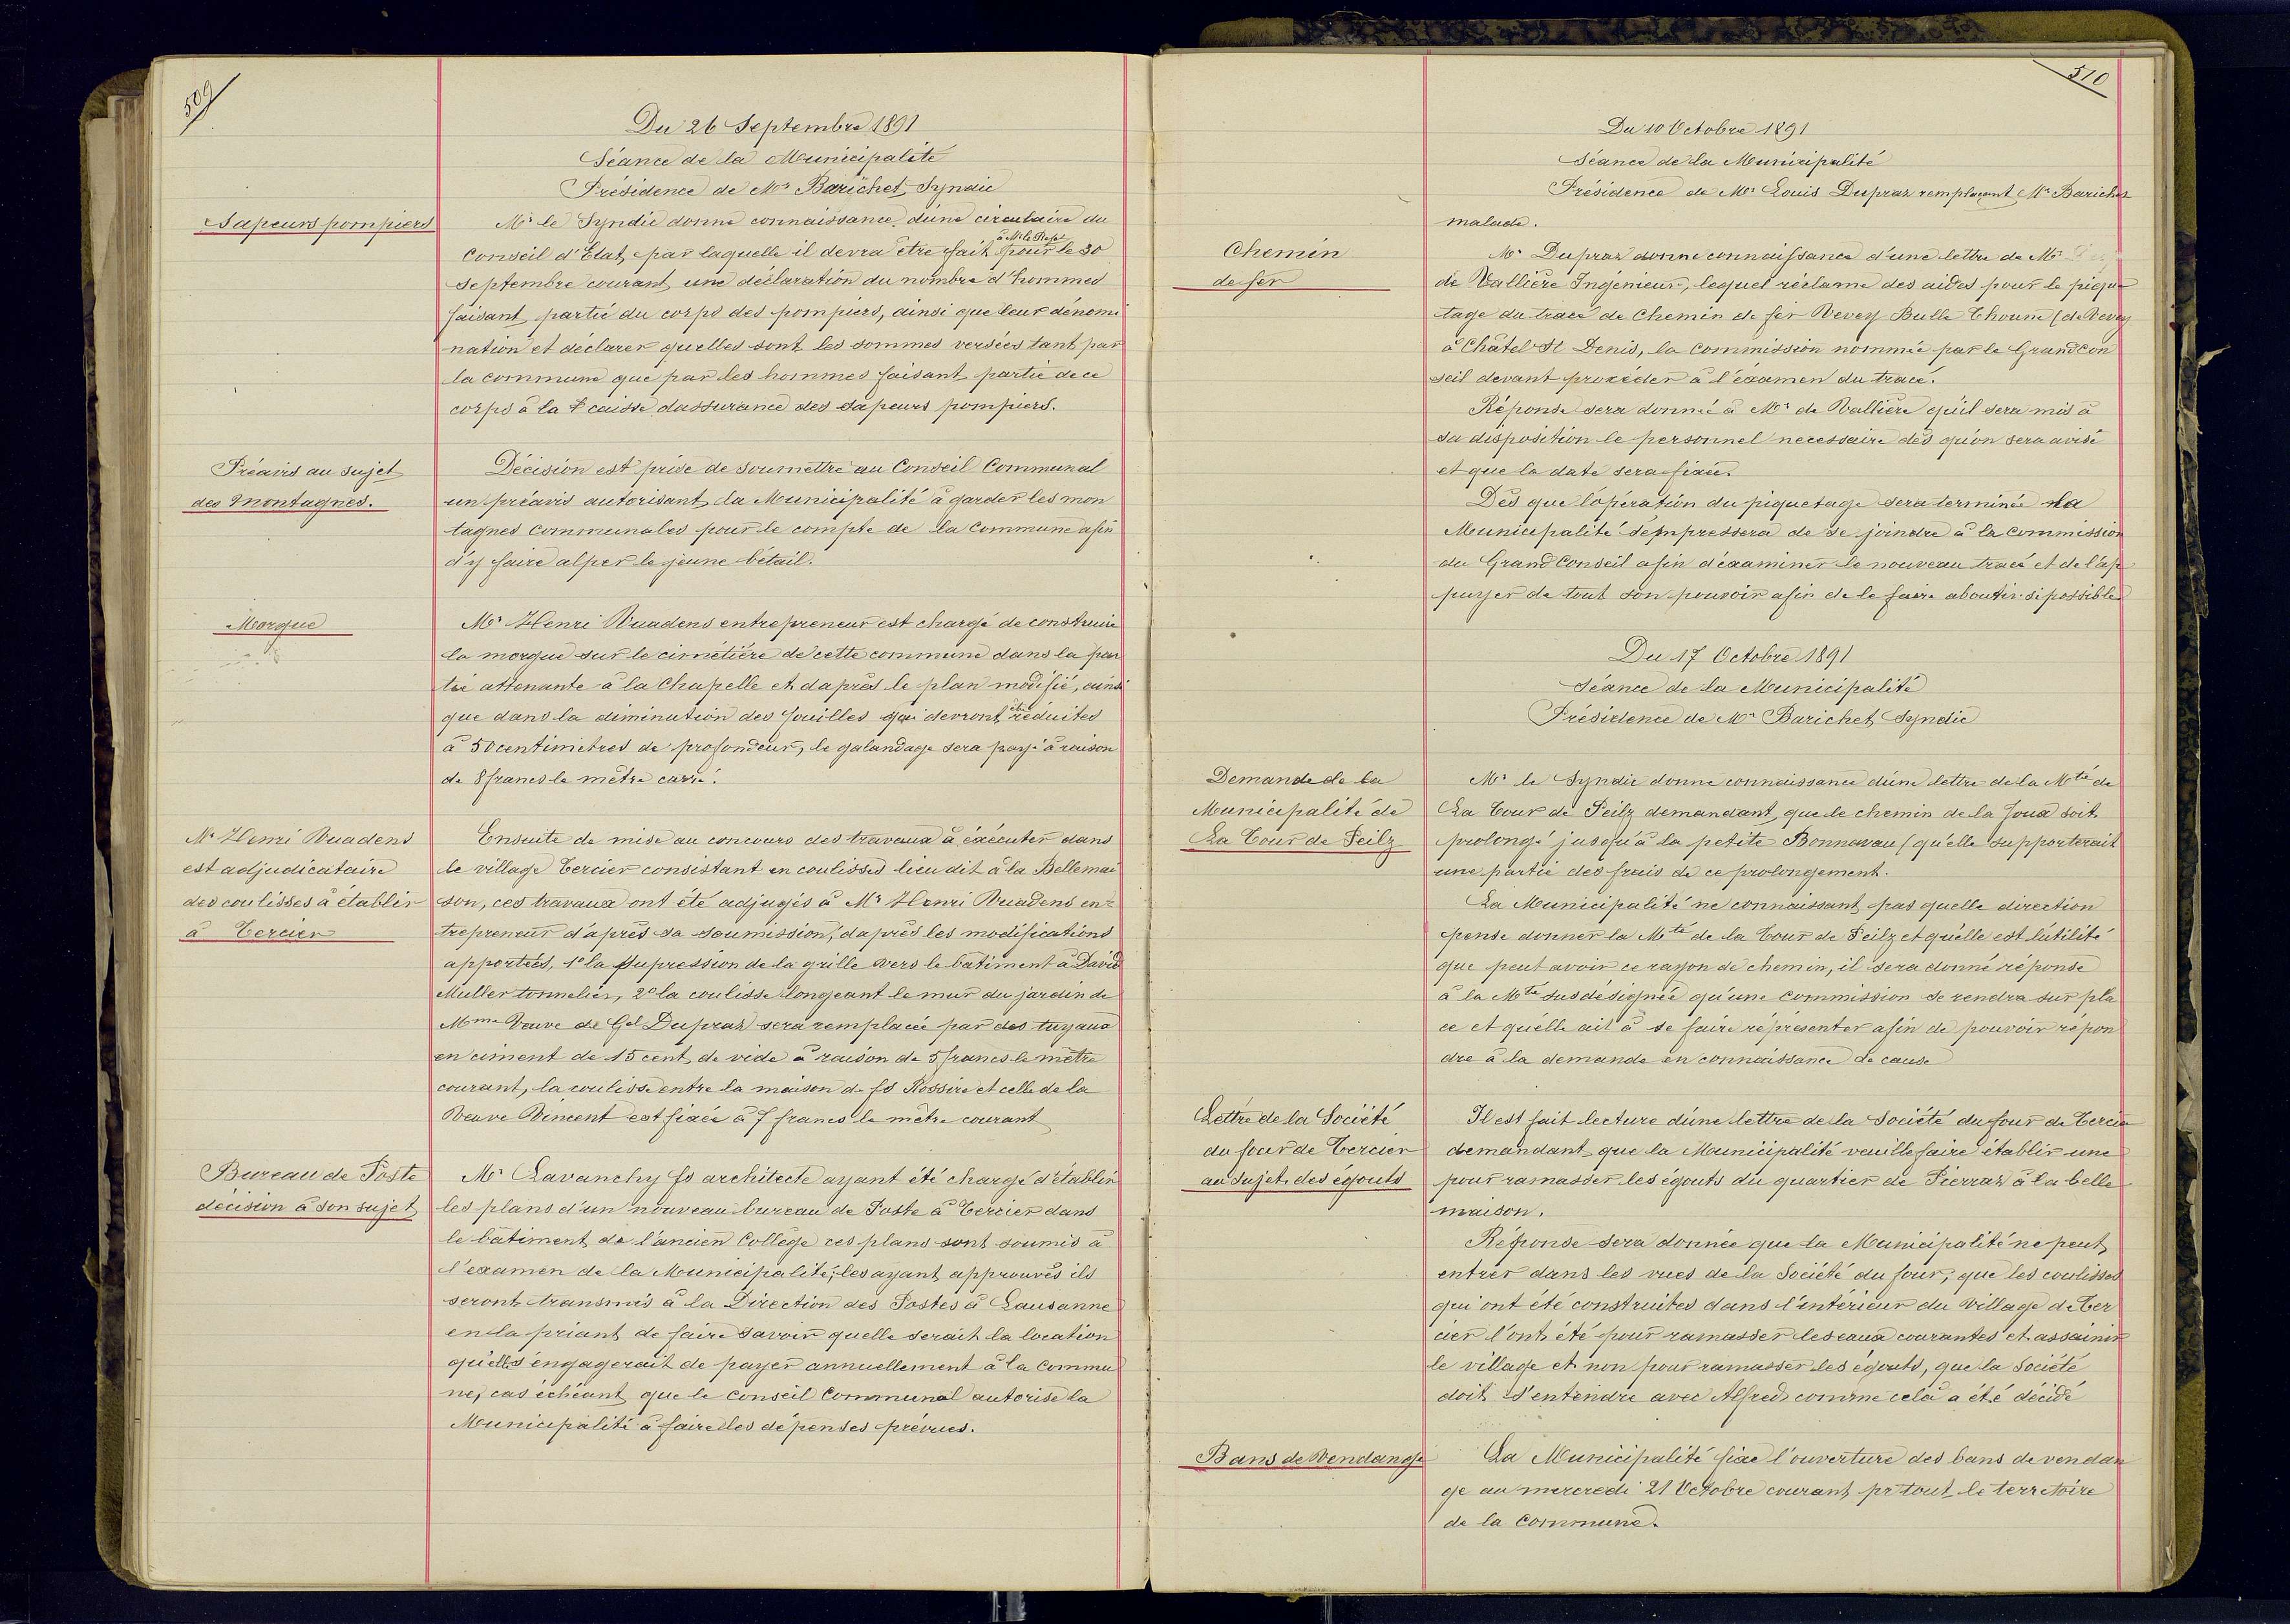 509
Du 26 Septembre 1891
Séance de la Municipalité
Présidence de Mr Barichet Syndic
Sapeurs pompiers
Mr le Syndic donne connaissance d'une circulaire du
Conseil d'Etat, par laquelle il devra être fait à Mr le Préfet pour le 30
Septembre courant une déclaration du nombre d'hommes
faisant partie du corps des pompiers, ainsi que leur dénomi
nation et déclarer quelles sont les sommes versées tant par
la commune que par les hommes faisant partie de ce
corps à la caisse d'assurance des sapeurs pompiers.
Préavis au sujet
des Montagnes.
Décision est prise de soumettre au Conseil Communal
un préavis autorisant la Municipalité à garder les mon
tagnes communales pour le compte de la Commune afin
d'y faire alper le jeune bétail.
Morgue
Mr Henri Vuadens entrepreneur est chargé de construire
la morgue sur le cimetière de cette commune dans la par
tie attenante à la Chapelle et d'après le plan modifié, ainsi
que dans la diminution des fouilles qui devront être réduites
à 50 centimètres de profondeur, le galandage sera payé à raison
de 8 francs le mètre carré.
Mr Henri Vuadens
est adjudicataire
des coulisses à établir
à Tercier
Ensuite de mise au concours des travaux à éxécuter dans
le village Tercier consistant en coulisses lieu dit à la Bellemai
son, ces travaux ont été adjugés à Mr Henri Vuadens en-
trepreneur d'après sa soumission, d'après les modifications
apportées, 1° la supression de la grille vers le bâtiment à David
Muller tonnelier, 2° la coulisse longeant le mur du jardin de
Mme Veuve de Gel Dupraz sera remplacée par des tuyaux
en ciment de 15 cent de vide à raison de 5 francs le mètre
courant, la coulisse entre la maison de fs Rossire et celle de la
Veuve Vincent est fixée à 7 francs le mètre courant
Bureau de Poste
décision à son sujet
Mr Lavanchy fs architecte ayant été chargé d'établir
les plans d'un nouveau bureau de Poste à Tercier dans
le bâtiment de l'ancien Collège ces plans sont soumis à
l'examen de la Municipalité, les ayant approuvés ils
seront transmis à la Direction des Postes à Lausanne
en la priant de faire savoir quelle serait la location
qu'elle s'engagerait de payer annuellement à la Commu
ne, cas échéant que le Conseil Communal autorise la
Municipalité à faire les dépenses prévues.
510
Du 10 Octobre 1891
Séance de la Municipalité
Présidence de Mr Louis Dupraz remplaçant Mr Barichet
malade.
Chemin
de fer
Mr Dupraz donne connaissance d'une lettre de Mr
de Vallière Ingénieur, lequel réclame des aides pour le pique
tage du tracé de Chemin de fer Vevey Bulle Thoune (de Vevey
à Châtel St Denis, la Commission nommée par le Grand Con
seil devant procéder à l'éxamen du tracé.
Réponse sera donnée à Mr de Vallière qu'il sera mis à
sa disposition le personnel necessaire dès qu'on sera avisé
et que la date sera fixée.
Dès que l'opération du piquetage sera terminée la
Municipalité s'empressera de se joindre à la Commission
du Grand Conseil afin d'éxaminer le nouveau tracé et de l'ap
puyer de tout son pouvoir afin de le faire aboutir si possible
Du 17 Octobre 1891
Séance de la Municipalité
Présidence de Mr Barichet Syndic
Demande de la
Municipalité de
La Tour de Peilz
Mr le Syndic donne connaissance d'une lettre de la Mté de
La Tour de Peilz demandant que le chemin de la Joux soit
prolongé jusqu'à la petite Bonnavau (qu'elle supporterait
une partie des frais de ce prolongement.
La Municipalité ne connaissant pas quelle direction
pense donner la Mté de la Tour de Peilz et qu'elle est l'utilité
que peut avoir ce rayon de chemin, il sera donné réponse
à la Mté susdésignée qu'une Commission se rendra sur pla
ce et qu'elle ait à se faire représenter afin de pouvoir répon
dre à la demande en connaissance de cause
Lettre de la Société
du four de Tercier
au sujet des égouts
Il est fait lecture d'une lettre de la Société du four de Tercier
demandant que la Municipalité veuille faire établir une
pour ramasser les égouts du quartier de Pierraz à la belle
maison.
Réponse sera donnée que la Municipalité ne peut
entrer dans les vues de la Société du four, que les coulisses
qui ont été construites dans l'intérieur du Village de Ter
cier l'ont été pour ramasser les eaux courantes et assainir
le village et non pour ramasser les égouts, que la Société
doit s'entendre avec Alfred comme celà a été décidé
Bans de Vendange
La Municipalité fixe l'ouverture des bans de vendan
ge au mercredi 21 Octobre courant pr tout le territoire
de la Commune.